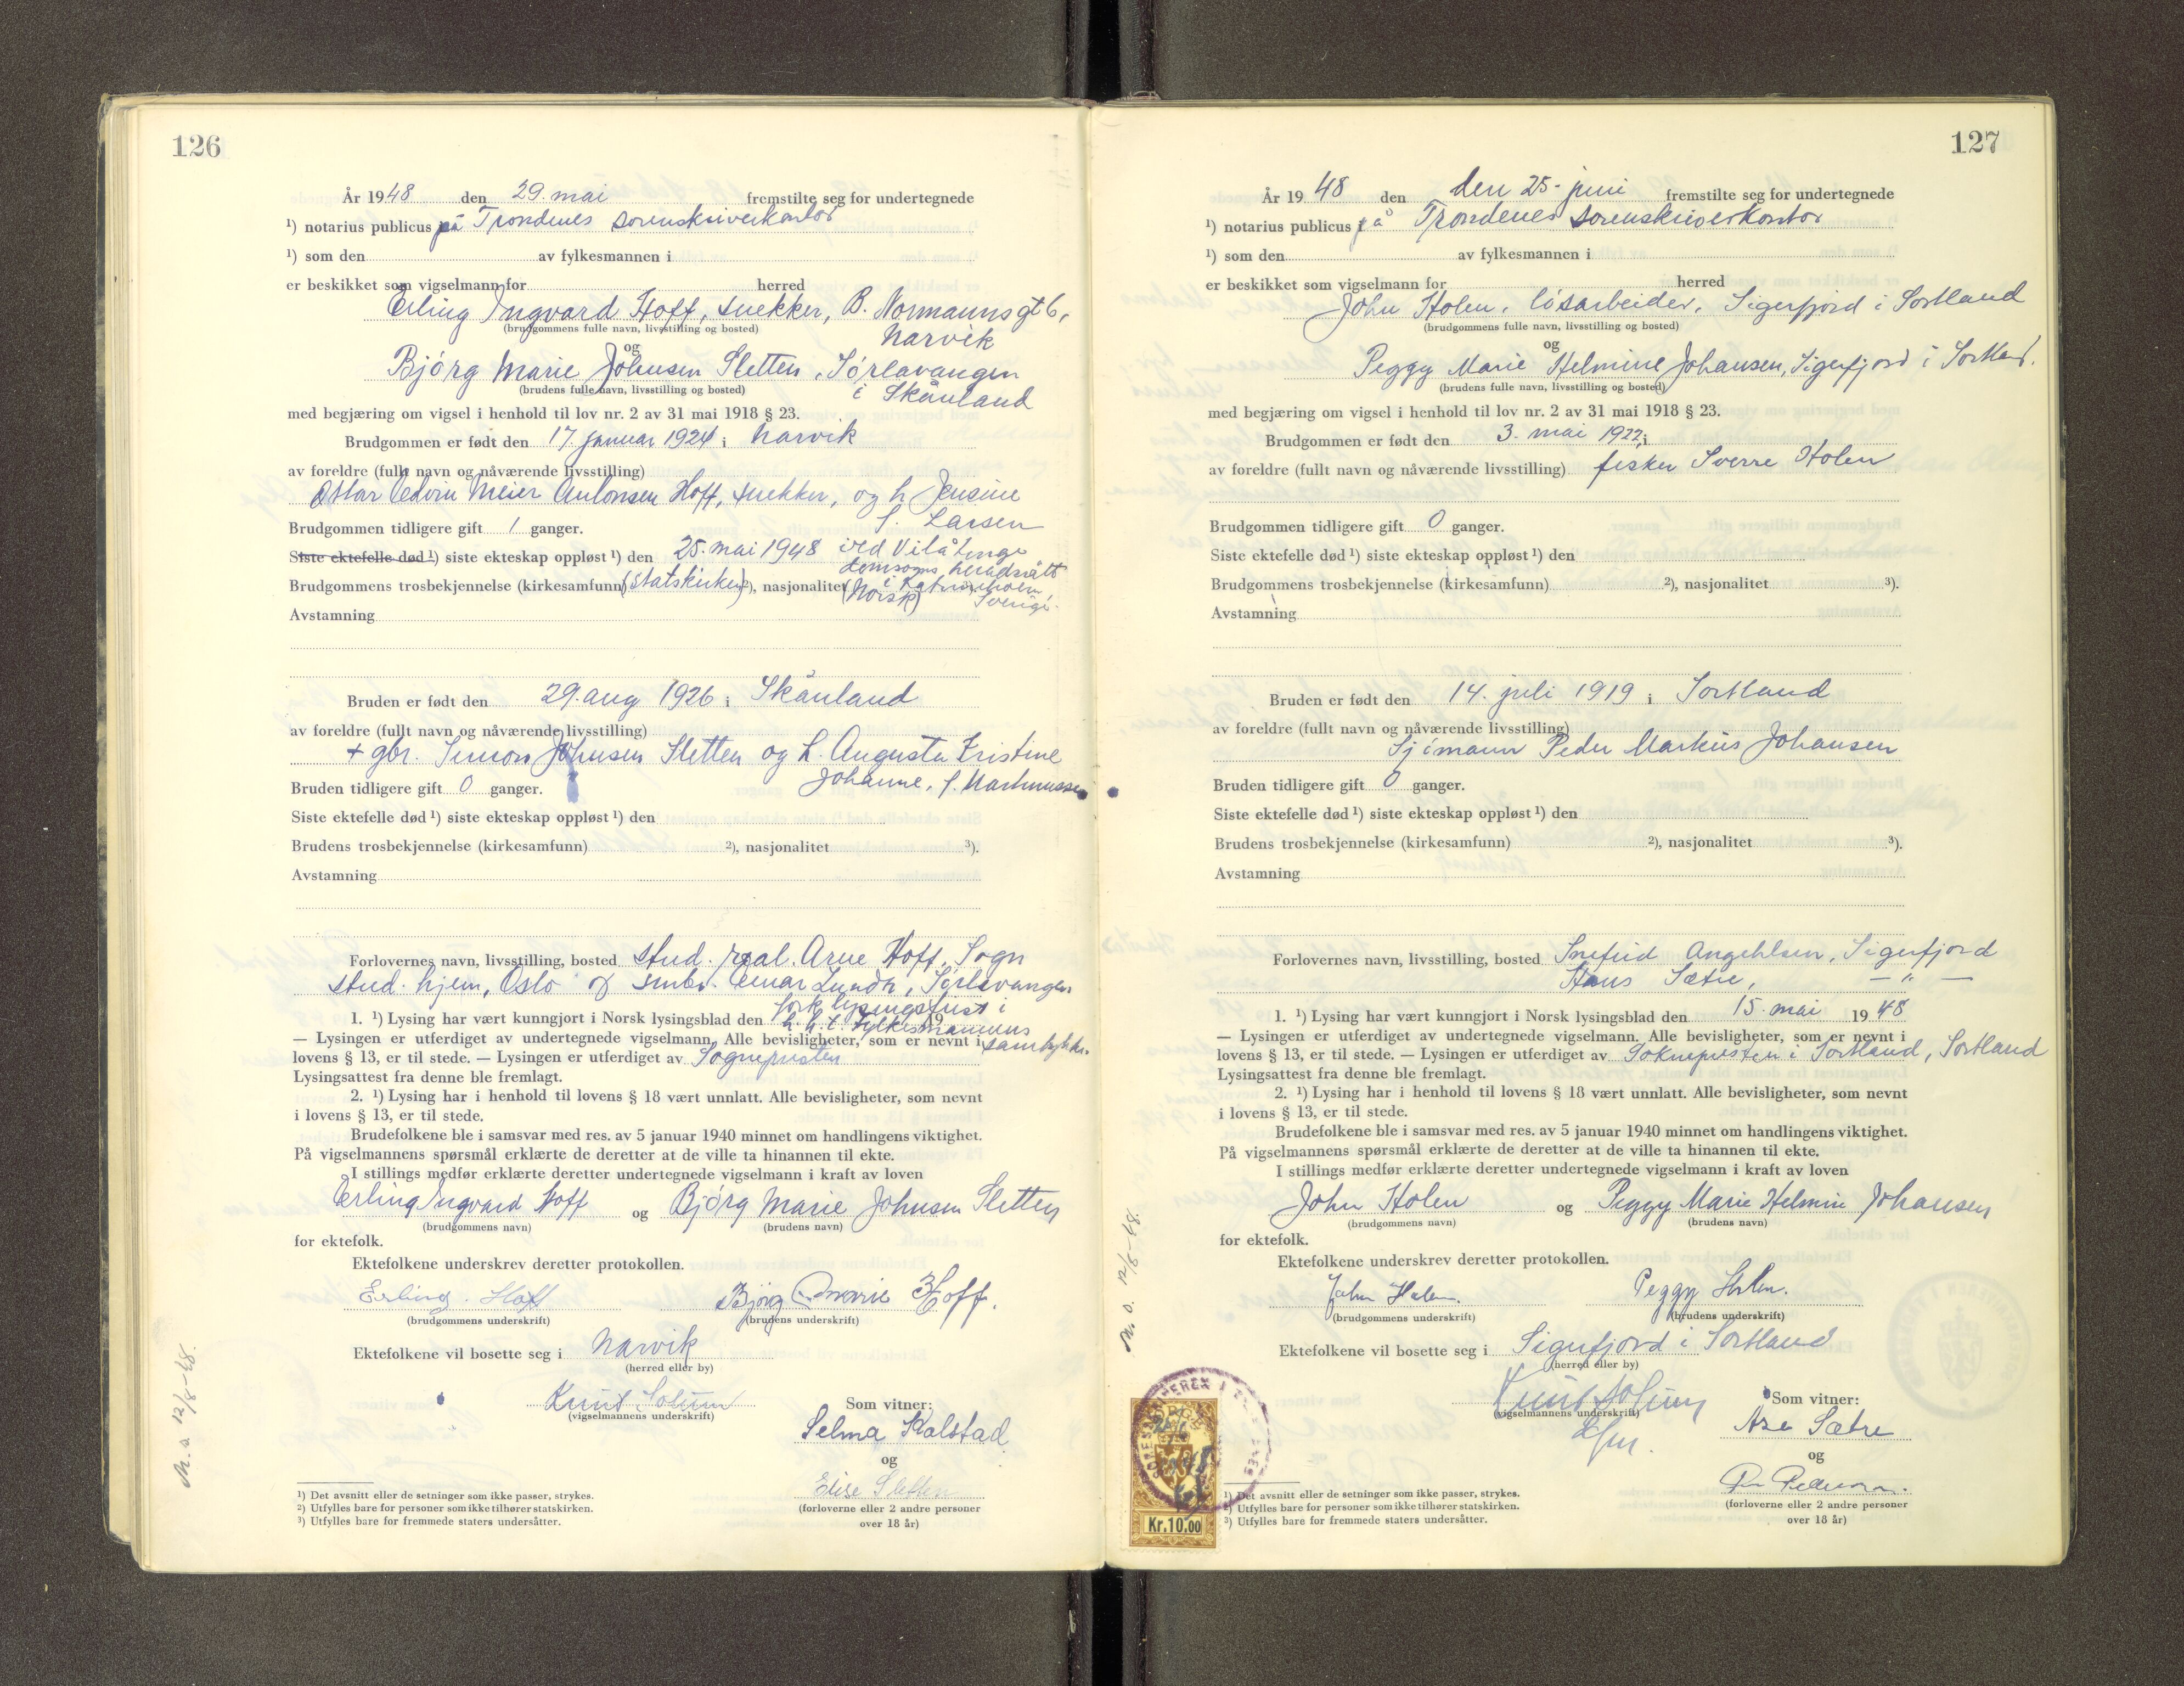 126
År 1948 den 29. mai fremstilte seg for undertegnede
¹) notarius publicus på Trondenes sorenskriverkontor
¹) som den av fylkesmannen i
er beskikket som vigselmann for herred
Erling Ingvard Hoff, snekker, B. Normannsgt 6,
(brudgommens fulle navn, livsstilling og bosted)
Narvik
og
Bjórg Marie Johnsen Sletten, Sórlavangen
(brudens fulle navn, livsstilling og bosted)
i Skånland
med begjæring om vigsel i henhold til lov nr. 2 av 31 mai 1918 § 23.
Brudgommen er født den 17 januar 1924 i Narvik
av foreldre (fullt navn og nåværende livsstilling)
Ottar Edvin Meier Antonsen Hoff, snekker, og h. Jensine
f. Larsen
Brudgommen tidligere gift 1 ganger.
Siste ektefelle død ¹) siste ekteskap oppløst ¹) den 25. mai 1948 ved
domsogns
Brudgommens trosbekjennelse (kirkesamfunn) (statskirken) ²), nasjonalitet (Norsk) i Sverige.
Avstamning
Bruden er født den 29. aug 1926 i Skånland
av foreldre (fullt navn og nåværende livsstilling)
+ gbr. Simon Johnsen Sletten og h. Augusta Kristine
Johanne, f.
Bruden tidligere gift 0 ganger.
Siste ektefelle død ¹) siste ekteskap oppløst ¹) den
Brudens trosbekjennelse (kirkesamfunn) ²), nasjonalitet ³).
Avstamning
Forlovernes navn, livsstilling, bosted stud. real. Arne Hoff, Sogn
stud. hjem, Oslo & småbr. Einar , Sórlavangen
1. ¹) Lysing har vært kunngjort i Norsk lysingsblad den fork. lysingsfrist i 19
h. h. t. fylkesmannens
— Lysingen er utferdiget av undertegnede vigselmann. Alle bevisligheter, som er nevnt i samtykke.
lovens § 13, er til stede. — Lysingen er utferdiget av Sognepresten
Lysingsattest fra denne ble fremlagt.
2. ¹) Lysing har i henhold til lovens § 18 vært unnlatt. Alle bevisligheter, som nevnt
i lovens § 13, er til stede.
Brudefolkene ble i samsvar med res. av 5 januar 1940 minnet om handlingens viktighet.
På vigselmannens spørsmål erklærte de deretter at de ville ta hinannen til ekte.
I stillings medfør erklærte deretter undertegnede vigselmann i kraft av loven
Erling Ingvard Hoff og Bjórg Marie Johnsen Sletten
(brudgommens navn) (brudens navn)
for ektefolk.
Ektefolkene underskrev deretter protokollen.
Erling. Hoff Bjórg Marie Hoff.
(brudgommens underskrift) (brudens underskrift)
Ektefolkene vil bosette seg i Narvik
(herred eller by)
Knut Solum
(vigselmannens underskrift)
Som vitner:
Selma Kalstad
og
Elise Sletten
(forloverne eller 2 andre personer
over 18 år)
¹) Det avsnitt eller de setninger som ikke passer, strykes.
²) Utfylles bare for personer som ikke tilhører statskirken.
³) Utfylles bare for fremmede staters undersåtter.
M. a 12/8-48.
127
År 1948 den den 25- juni fremstilte seg for undertegnede
¹) notarius publicus på Trondenes sorenskriverkontor
¹) som den av fylkesmannen i
er beskikket som vigselmann for herred
John Holen, lósarbeider, Sigerfjord i Sortland
(brudgommens fulle navn, livsstilling og bosted)
og
Peggy Marie Helmine Johansen, Sigerfjord i Sortland.
(brudens fulle navn, livsstilling og bosted)
med begjæring om vigsel i henhold til lov nr. 2 av 31 mai 1918 § 23.
Brudgommen er født den 3. mai 1922 i
av foreldre (fullt navn og nåværende livsstilling) fisker Sverre Holen
Brudgommen tidligere gift 0 ganger.
Siste ektefelle død ¹) siste ekteskap oppløst ¹) den
Brudgommens trosbekjennelse (kirkesamfunn) ²), nasjonalitet ³).
Avstamning
Bruden er født den 14. juli 1919 i Sortland
av foreldre (fullt navn og nåværende livsstilling)
Sjómann Peder Markus Johansen
Bruden tidligere gift 0 ganger.
Siste ektefelle død ¹) siste ekteskap oppløst ¹) den
Brudens trosbekjennelse (kirkesamfunn) ²), nasjonalitet ³).
Avstamning
Forlovernes navn, livsstilling, bosted Snefrid , Sigerfjord
Hans Sætre, — " —
1. ¹) Lysing har vært kunngjort i Norsk lysingsblad den 15. mai 1948
— Lysingen er utferdiget av undertegnede vigselmann. Alle bevisligheter, som er nevnt i
lovens § 13, er til stede. — Lysingen er utferdiget av Soknepresten i Sortland, Sortland
Lysingsattest fra denne ble fremlagt.
2. ¹) Lysing har i henhold til lovens § 18 vært unnlatt. Alle bevisligheter, som nevnt
i lovens § 13, er til stede.
Brudefolkene ble i samsvar med res. av 5 januar 1940 minnet om handlingens viktighet.
På vigselmannens spørsmål erklærte de deretter at de ville ta hinannen til ekte.
I stillings medfør erklærte deretter undertegnede vigselmann i kraft av loven
John Holen og Peggy Marie Helmine Johansen
(brudgommens navn) (brudens navn)
for ektefolk.
Ektefolkene underskrev deretter protokollen.
John Holen. Peggy Holen.
(brudgommens underskrift) (brudens underskrift)
Ektefolkene vil bosette seg i Sigerfjord i Sortland
(herred eller by)
Knut Solum
(vigselmannens underskrift)
Som vitner:
Åse Sætre
og
Pedersen.
(forloverne eller 2 andre personer
over 18 år)
¹) Det avsnitt eller de setninger som ikke passer, strykes.
²) Utfylles bare for personer som ikke tilhører statskirken.
³) Utfylles bare for fremmede staters undersåtter.
M. o. 12/8-48.
Kr.10.00